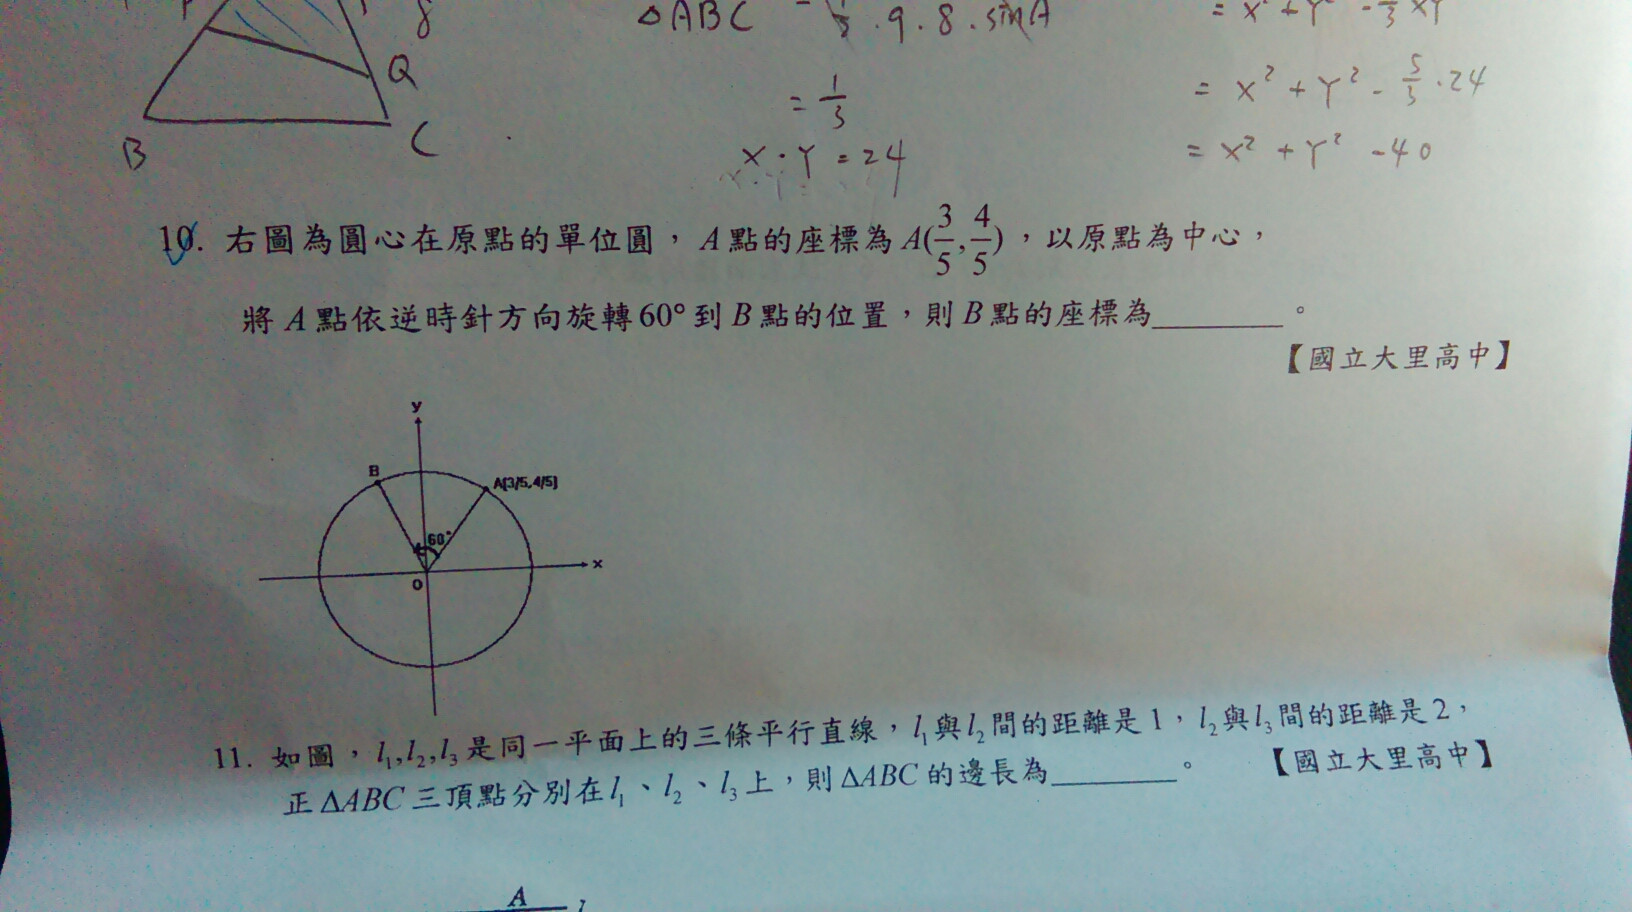 Q
B
C
△ABC = · 9 · 8 · sinA
= 1/3
x · Y = 24
= x² + Y² - 5/3 xY
= x² + Y² - 5/3 · 24
= x² + Y² - 40
10. 右圖為圓心在原點的單位圓，A點的座標為A(3/5, 4/5)，以原點為中心，
將A點依逆時針方向旋轉60°到B點的位置，則B點的座標為________。
【國立大里高中】
y
B
A(3/5,4/5)
60°
x
O
11. 如圖，l₁,l₂,l₃是同一平面上的三條平行直線，l₁與l₂間的距離是1，l₂與l₃間的距離是2，
正△ABC三頂點分別在l₁、l₂、l₃上，則△ABC的邊長為________。 【國立大里高中】
A